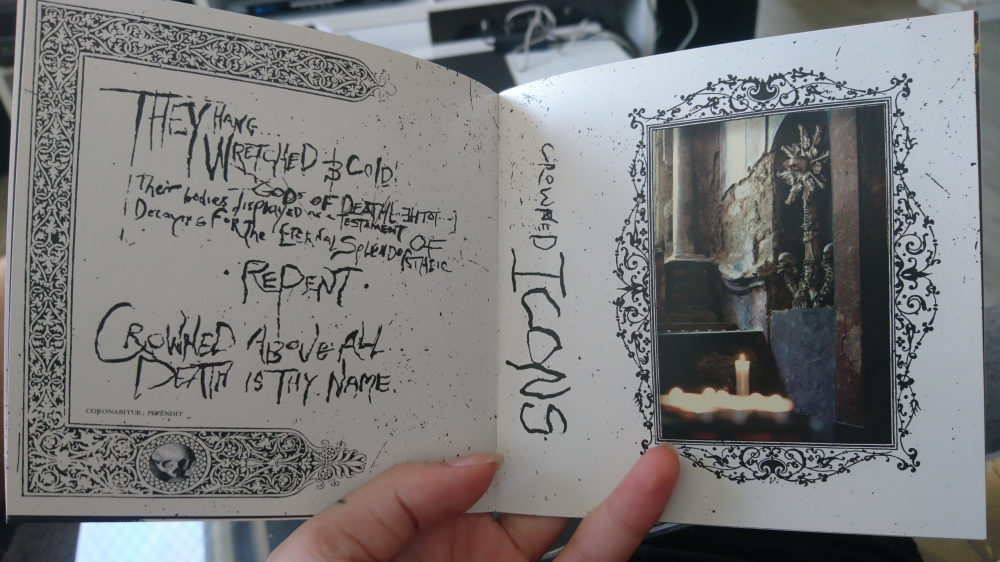 THEY HANG...
WRETCHED & COLD
GODS OF DEATH
Their bodies displayed as a TESTAMENT
Decaying FOR THE ETERNAL SPLENDOR OF
REPENT.
CROWNED ABOVE ALL
DEATH IS THY NAME.
CORONABITUR; PEPENDIT
CROWNED
ICONS